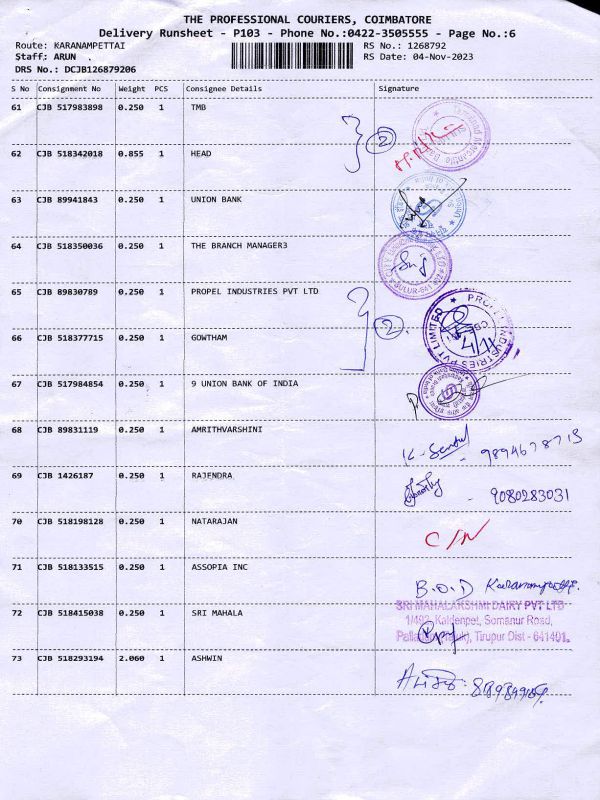 THE PROFESSIONAL COURIERS, COIMBATORE
Delivery Runsheet - P103 - Phone No.:0422-3505555 - Page No.:6
Route: KARANAMPETTAI RS No.: 1268792
Staff: ARUN . RS Date: 04-Nov-2023
DRS No.: DCJB126879206
S No Consignment No Weight PCS Consignee Details Signature
61 CJB 517983898 0.250 1 TMB
2
62 CJB 518342018 0.855 1 HEAD
63 CJB 89941843 0.250 1 UNION BANK
64 CJB 518350036 0.250 1 THE BRANCH MANAGER3
SULUR-641
65 CJB 89830789 0.250 1 PROPEL INDUSTRIES PVT LTD
2.
PROPEL INDUSTRIES PVT LIMITED
66 CJB 518377715 0.250 1 GOWTHAM
67 CJB 517984854 0.250 1 9 UNION BANK OF INDIA
68 CJB 89831119 0.250 1 AMRITHVARSHINI
69 CJB 1426187 0.250 1 RAJENDRA
9080283031
70 CJB 518198128 0.250 1 NATARAJAN
C/N
71 CJB 518133515 0.250 1 ASSOPIA INC
B.O.D
SRI MAHALAKSHMI DAIRY PVT LTD
72 CJB 518415038 0.250 1 SRI MAHALA
Somanur Road,
Tirupur Dist - 641401.
73 CJB 518293194 2.060 1 ASHWIN